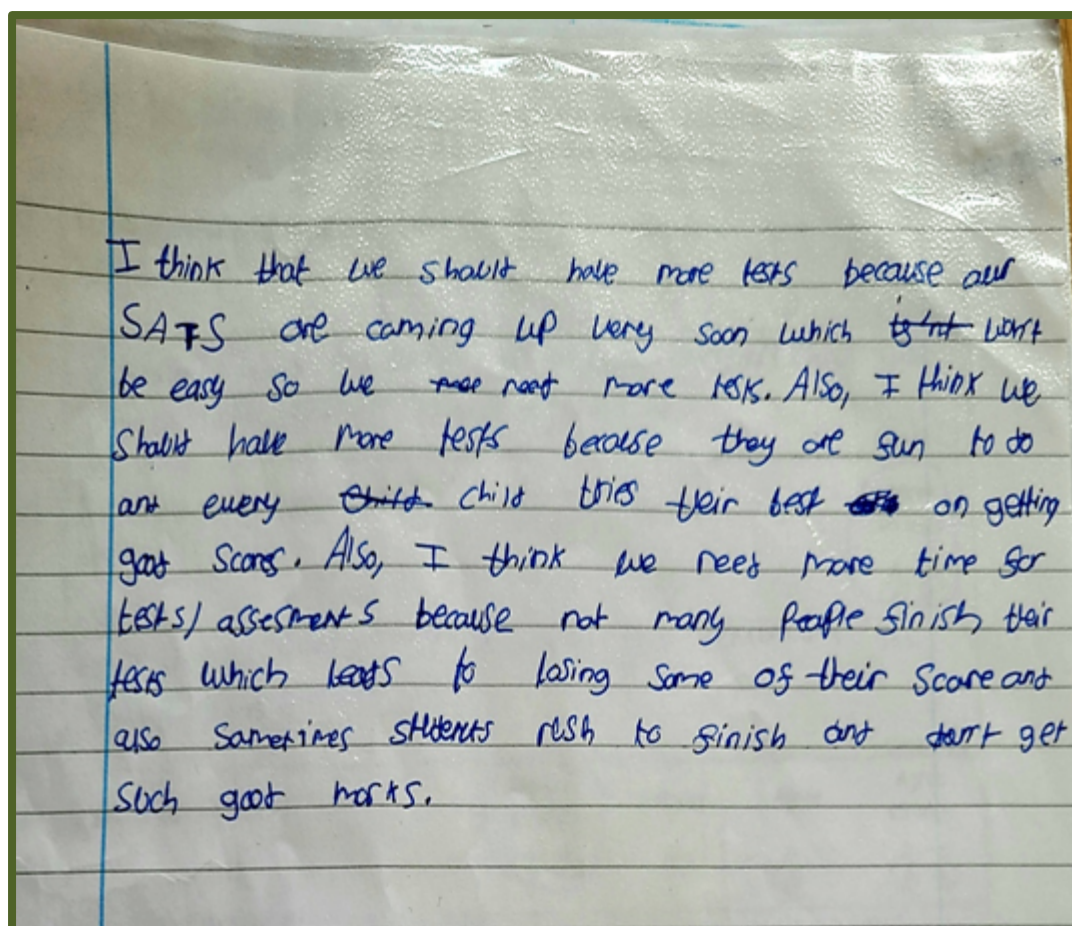 I think that we should have more tests because our
SATS are coming up very soon which won't
be easy so we need more tests. Also, I think we
should have more tests because they are fun to do
and every child tries their best on getting
good scores. Also, I think we need more time for
tests/assesments because not many people finish their
tests which leads to losing some of their score and
also sometimes students rush to finish and don't get
such good marks.